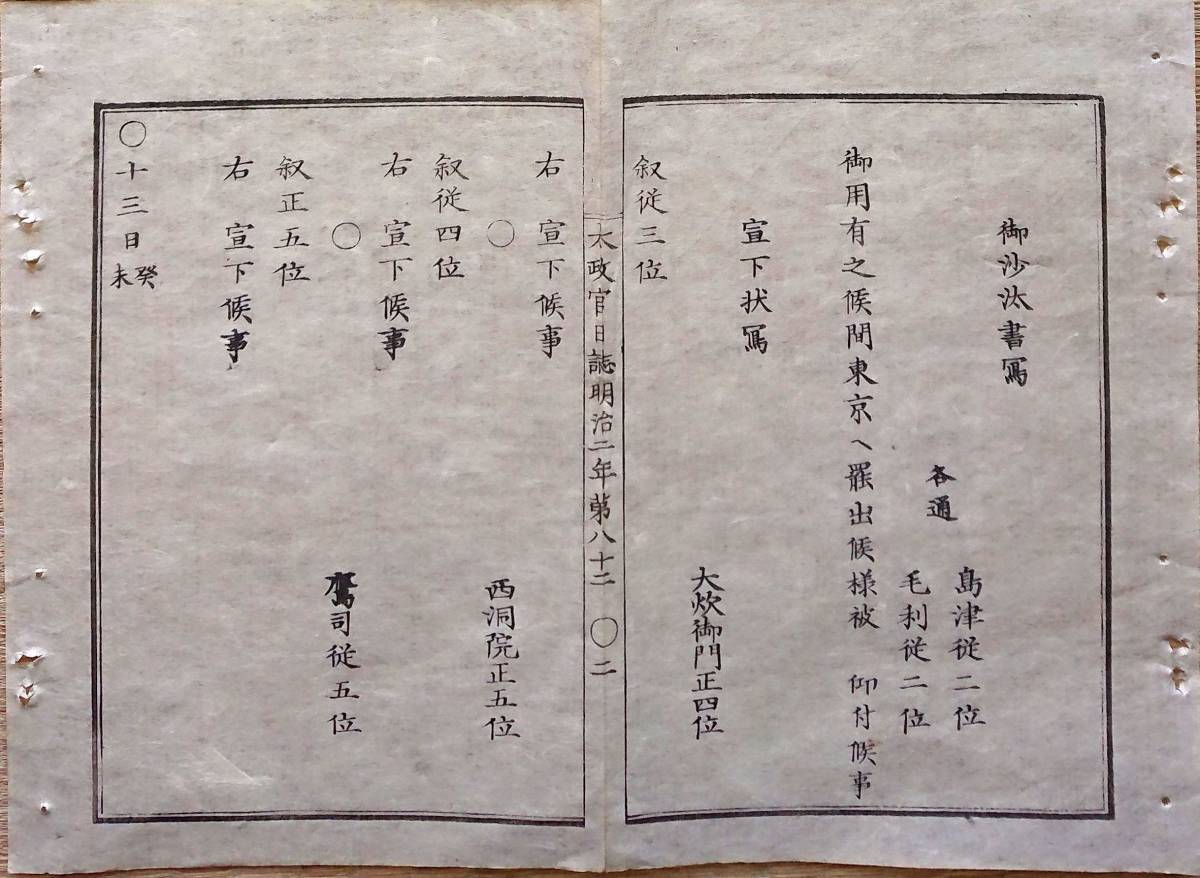 御沙汰書寫
島津従二位
各通
毛利従二位
御用有之候間東京ヘ罷出候様被 仰付候事
宣下状寫
大炊御門正四位
叙従三位
太政官日誌明治二年第八十二 〇二
右 宣下候事
〇
西洞院正五位
叙従四位
右 宣下候事
〇
鷹司従五位
叙正五位
右 宣下候事
〇十三日癸未